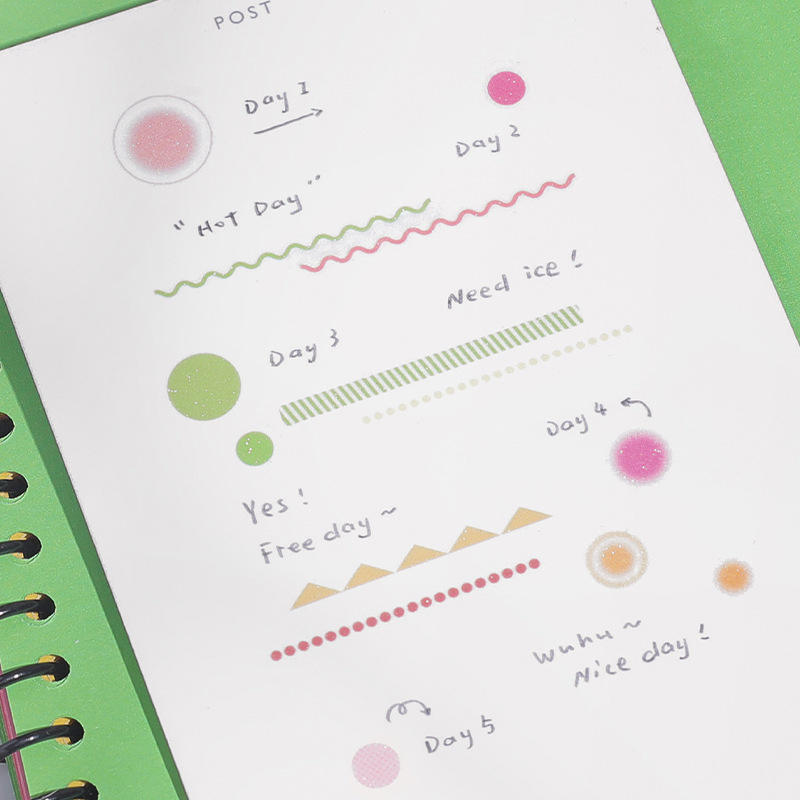 POST
Day 1
Day 2
"Hot Day"
Need ice!
Day 3
Day 4
Yes!
Free day~
wuhu~
Nice day!
Day 5